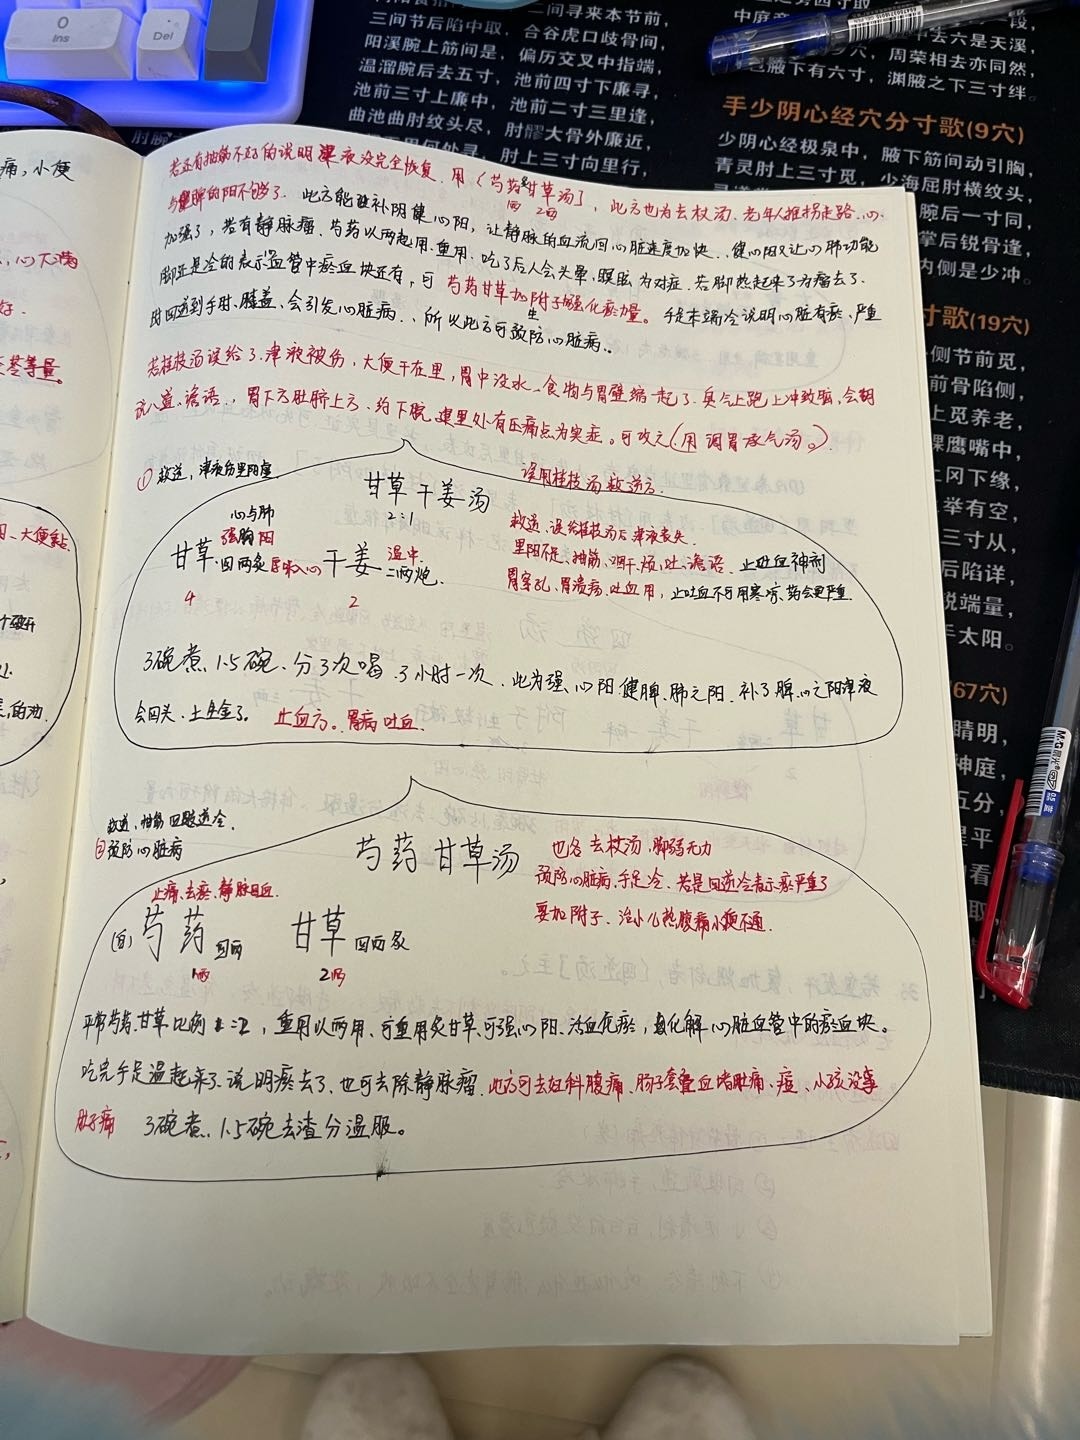 O
Ins
Del
三间节后陷中取,
阳溪腕上筋间是,
温溜腕后去五寸,
池前三寸上廉中,
曲池曲肘纹头尽,
二间寻来本节前,
合谷虎口歧骨间,
偏历交叉中指端,
池前四寸下廉寻,
池前二寸三里逢,
肘髎大骨外廉近,
肘上三寸向里行,
中去六是天溪,
周荣相去亦同然,
腋下有六寸, 渊腋之下三寸绊。
手少阴心经穴分寸歌(9穴)
少阴心经极泉中, 腋下筋间动引胸,
青灵肘上三寸觅, 少海屈肘横纹头,
腕后一寸同,
掌后锐骨逢,
内侧是少冲。
寸歌(19穴)
侧节前觅,
前骨陷侧,
上觅养老,
髁鹰嘴中,
上冈下缘,
举有空,
三寸从,
后陷详,
说端量,
手太阳。
67穴)
睛明,
神庭,
五分,
平
看
取,
痛, 小便
好.
等量。
大便黏.
若还有抽筋不好的说明津液没完全恢复. 用《芍药甘草汤》, 此方也为去杖汤. 老年人推拐走路. 心
1两 2两
与脾的阳不够了. 此方能补阴健心阳, 让静脉的血流回心脏速度加快.. 健心阳又让心肺功能
加强了, 若有静脉瘤. 芍药以两起用. 重用. 吃了后人会头晕. 瞑眩为对症. 若脚热起来了为瘤去了.
脚还是冷的表示血管中瘀血块还有, 可芍药甘草加附子强化瘀力量。手足末端冷说明心脏有瘀. 严重
生
时回逆到手肘. 膝盖. 会引发心脏病.. 所以此方可预防心脏病..
若桂枝汤误给了. 津液被伤, 大便干在里, 胃中没水. 食物与胃壁缩一起了. 臭气上跑上冲致脑, 会胡
说八道. 谵语., 胃下方肚脐上方. 约下脘. 建里处有压痛点为实症。可攻之(用调胃承气汤。)
①救逆, 津液伤里阳虚
误用桂枝汤救逆方.
甘草干姜汤
2:1
心与肺
强胸阳
甘草 四两炙 干姜 温中. 二两炮.
4 2
救逆. 误给桂枝汤后津液丧失.
里阳不足. 抽筋. 咽干. 烦. 吐. 谵语. 止吐血神剂
胃穿孔. 胃溃疡. 吐血用, 止吐血不可用寒凉药会更严重.
3碗煮. 1.5碗. 分3次喝. 3小时一次. 此为强心阳. 健脾. 肺之阳. 补了脾. 心之阳津液
会回头. 土生金了. 止血方。胃病吐血.
救逆, 抽筋四肢逆冷.
②预防心脏病
芍药甘草汤
也名去杖汤. 脚弱无力
预防心脏病. 手足冷. 若是回逆冷表示瘀严重了
要加附子. 治小儿热腹痛小便不通.
止痛. 去瘀. 静脉回血.
(白)芍药 四两 甘草 四两炙
1两 2两
平常芍药. 甘草比例1:2, 重用以两用. 可重用炙甘草. 可强心阳. 活血化瘀, 化解心脏血管中的瘀血块。
吃完手足温起来了. 说明瘀去了. 也可去除静脉瘤. 此方可去妇科腹痛. 肠子套叠血堵肚痛. 痘. 小孩没事
肚子痛 3碗煮. 1.5碗去渣分温服。
M&G 晨光
0.5